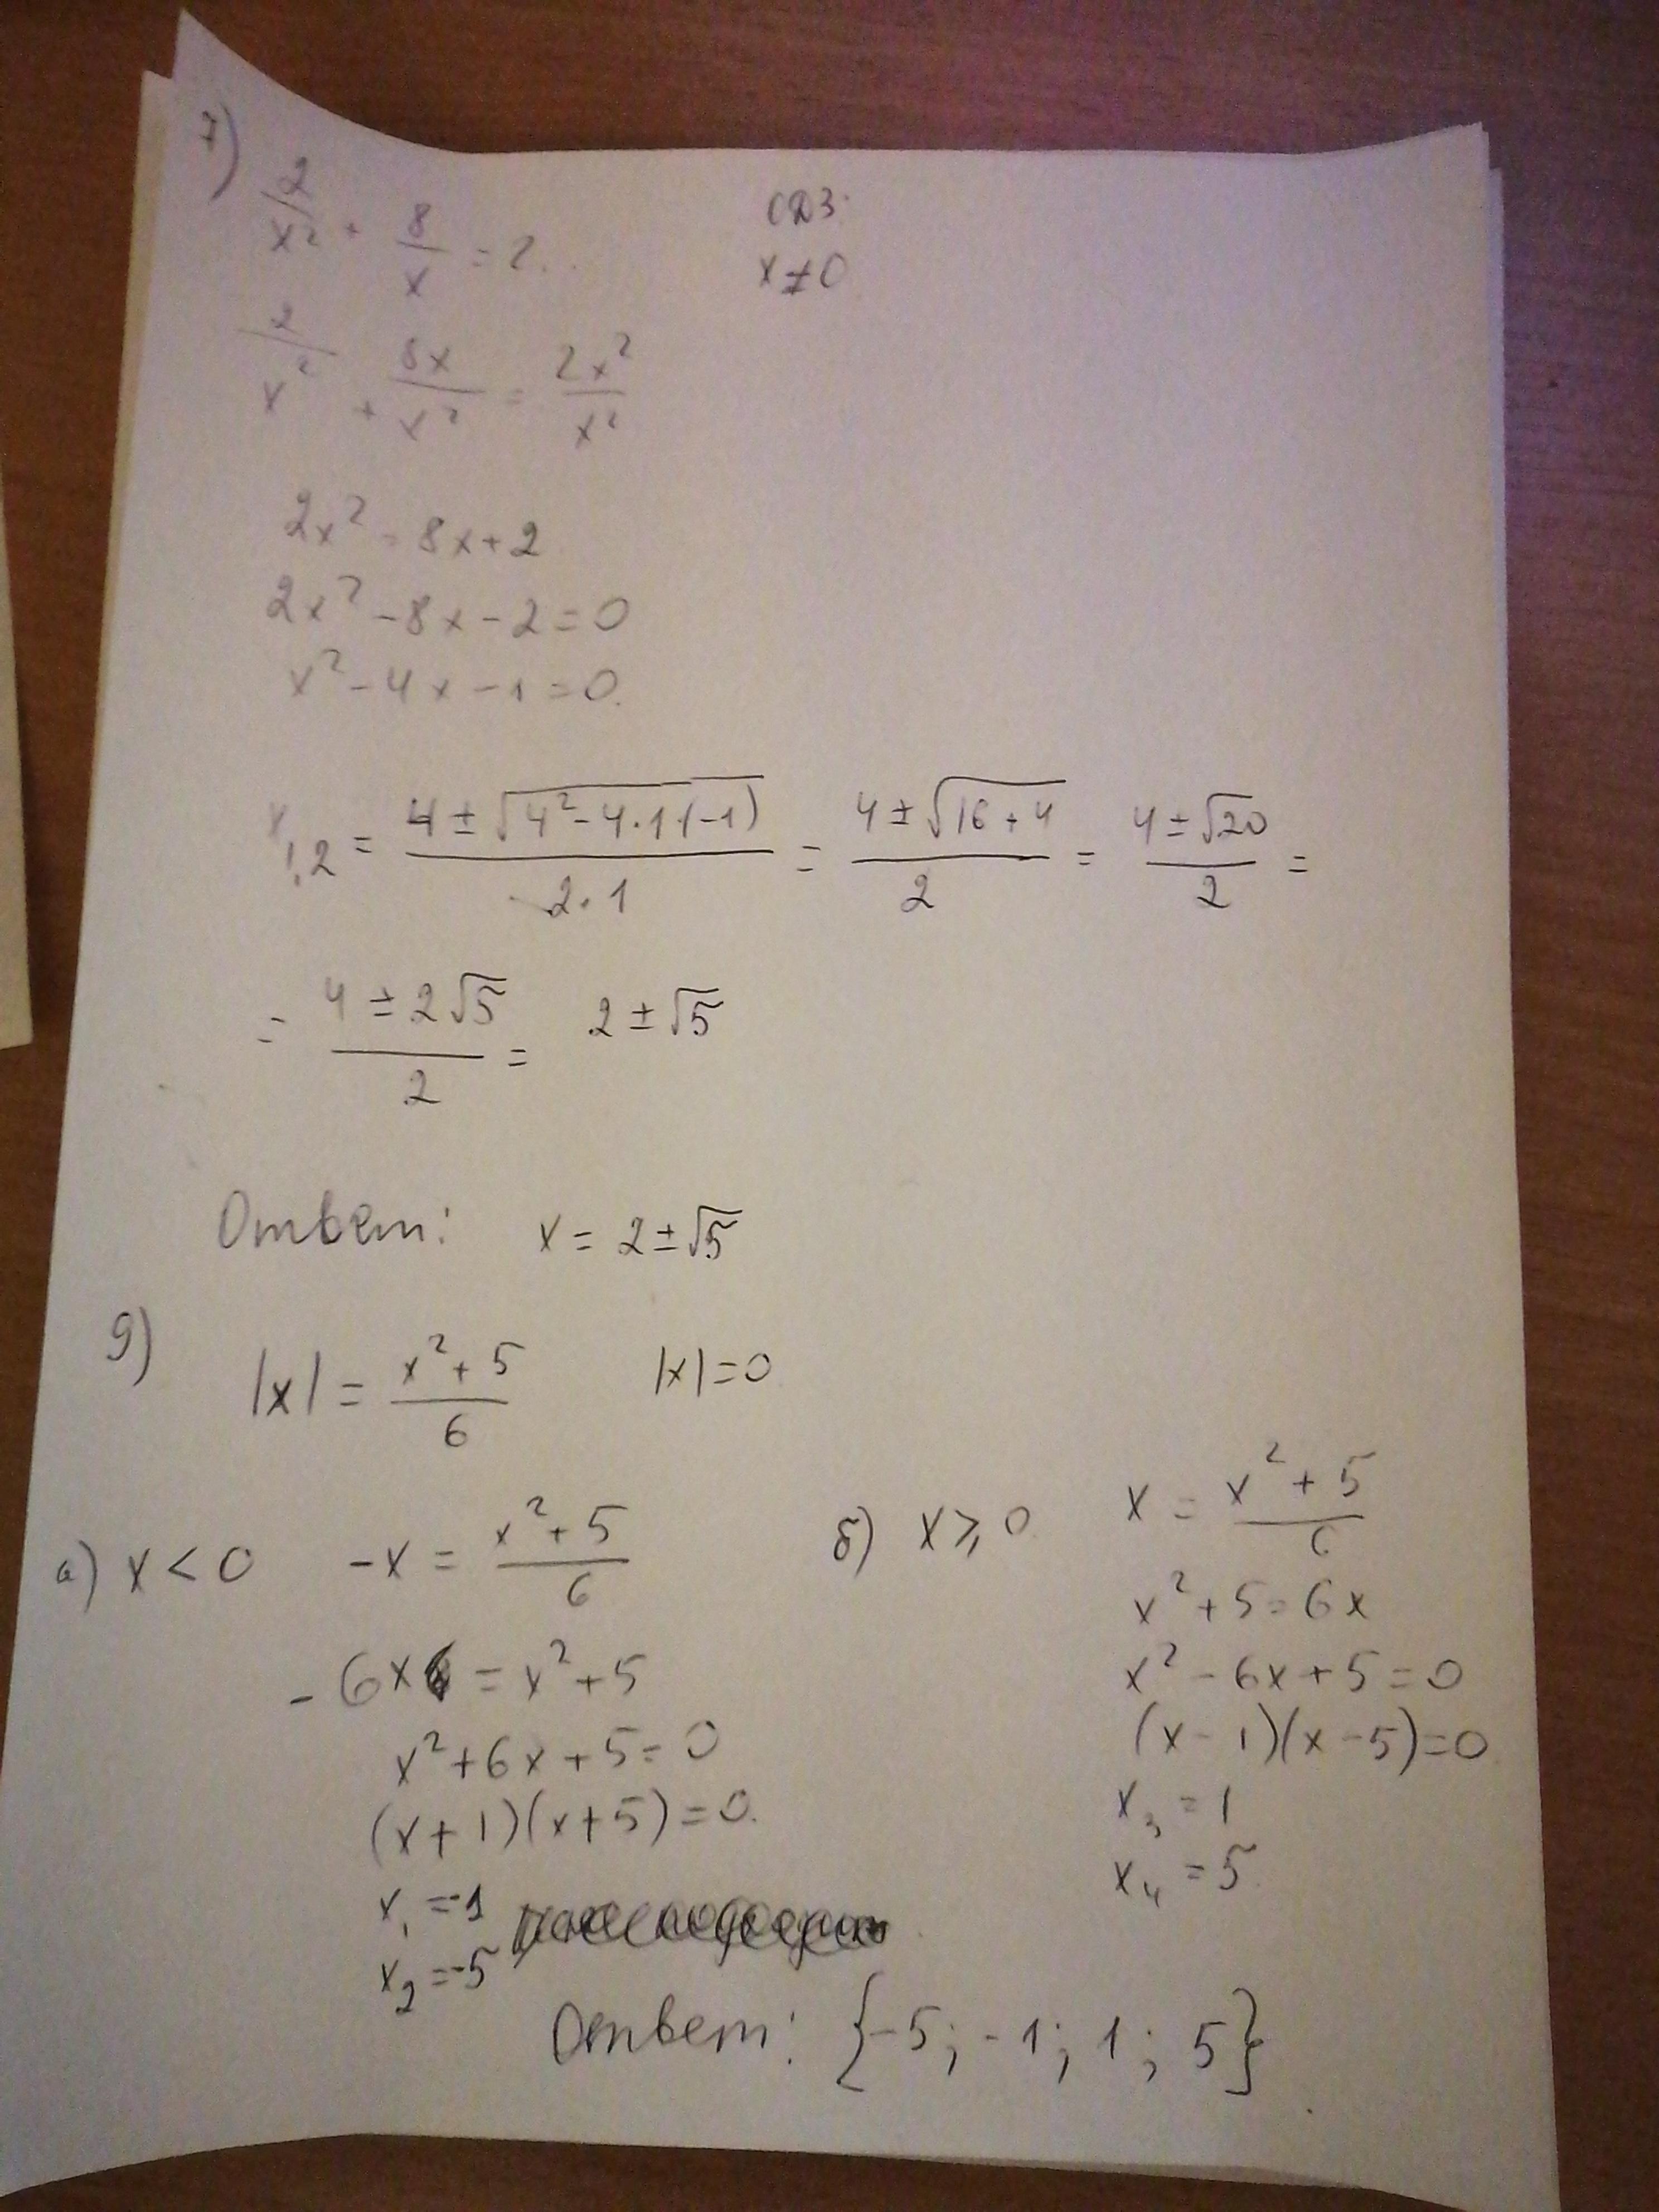 7)
2/x² + 8/x = 2.
ОДЗ:
x ≠ 0
2/x² + 8x/x² = 2x²/x²
2x² = 8x+2
2x² - 8x - 2 = 0
x² - 4x - 1 = 0.
x1,2 = (4 ± √(4² - 4·1·(-1)))/(2·1) = (4 ± √(16+4))/2 = (4 ± √20)/2 =
= (4 ± 2√5)/2 = 2 ± √5
Ответ: x = 2 ± √5
9)
|x| = (x² + 5)/6
|x| = 0
а) x < 0
-x = (x² + 5)/6
-6x = x² + 5
x² + 6x + 5 = 0
(x+1)(x+5) = 0.
x₁ = -1
x₂ = -5
б) x ⩾ 0
x = (x² + 5)/6
x² + 5 = 6x
x² - 6x + 5 = 0
(x - 1)(x - 5) = 0
x₃ = 1
x₄ = 5.
Ответ: {-5; -1; 1; 5}